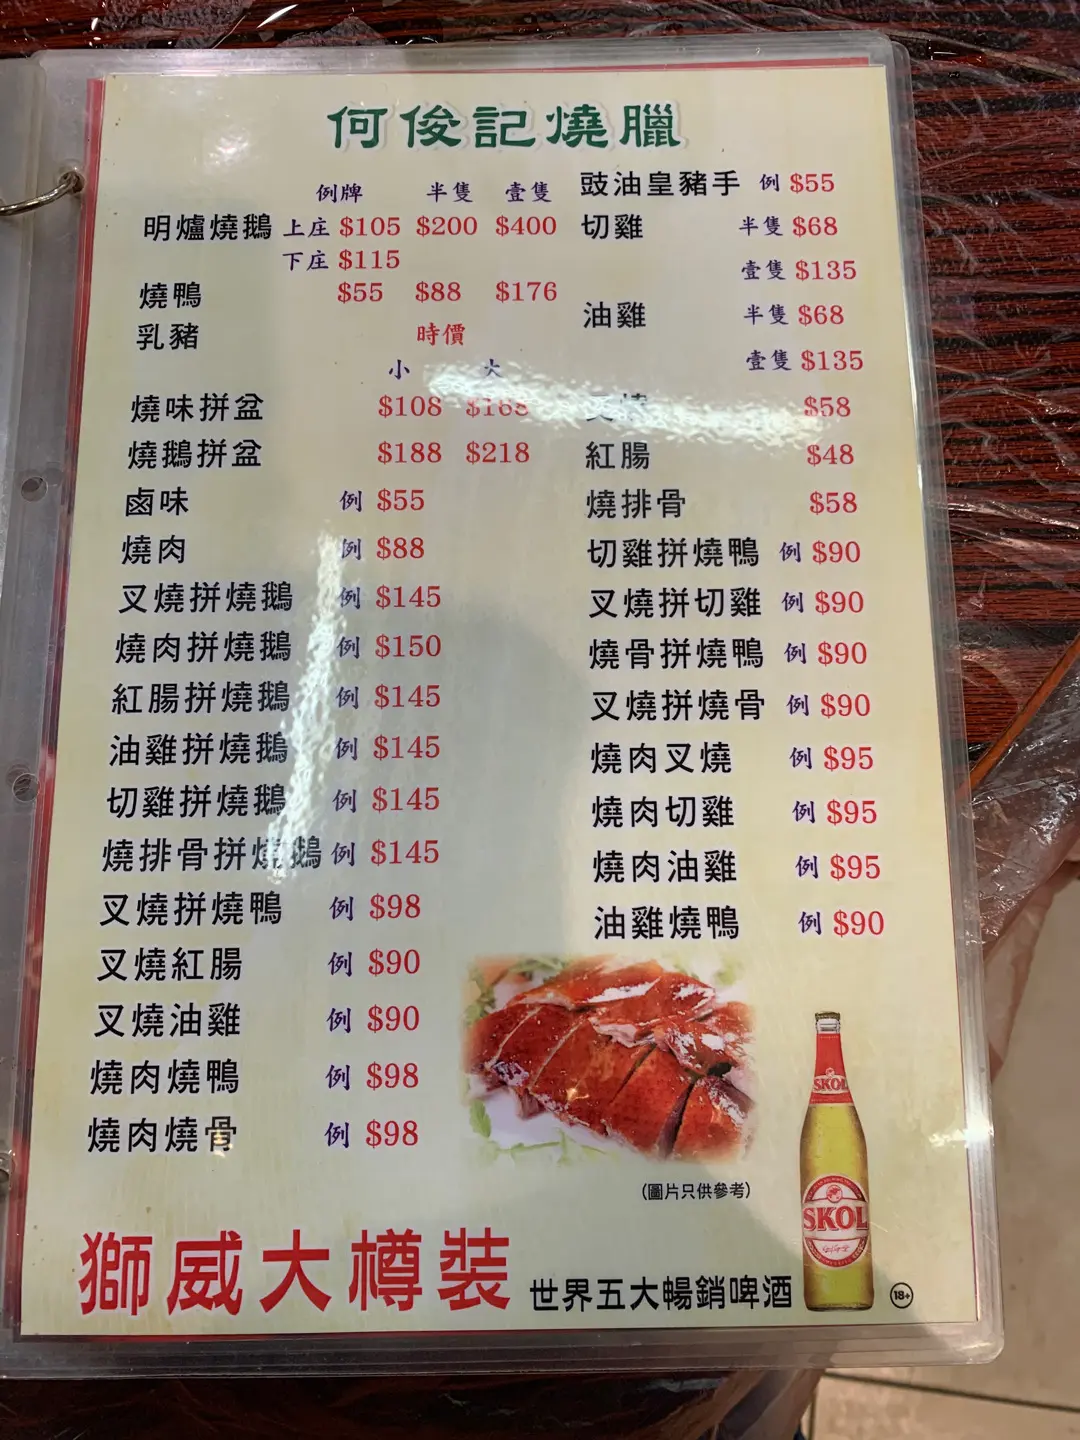 何俊記燒臘
例牌 半隻 壹隻
明爐燒鵝 上庄 $105 $200 $400
下庄 $115
燒鴨 $55 $88 $176
乳豬 時價
小 大
燒味拼盆 $108 $168
燒鵝拼盆 $188 $218
鹵味 例 $55
燒肉 例 $88
叉燒拼燒鵝 例 $145
燒肉拼燒鵝 例 $150
紅腸拼燒鵝 例 $145
油雞拼燒鵝 例 $145
切雞拼燒鵝 例 $145
燒排骨拼燒鵝 例 $145
叉燒拼燒鴨 例 $98
叉燒紅腸 例 $90
叉燒油雞 例 $90
燒肉燒鴨 例 $98
燒肉燒骨 例 $98
豉油皇豬手 例 $55
切雞 半隻 $68
壹隻 $135
油雞 半隻 $68
壹隻 $135
叉燒 $58
紅腸 $48
燒排骨 $58
切雞拼燒鴨 例 $90
叉燒拼切雞 例 $90
燒骨拼燒鴨 例 $90
叉燒拼燒骨 例 $90
燒肉叉燒 例 $95
燒肉切雞 例 $95
燒肉油雞 例 $95
油雞燒鴨 例 $90
(圖片只供參考)
SKOL
SKOL
獅威大樽裝 世界五大暢銷啤酒
18+